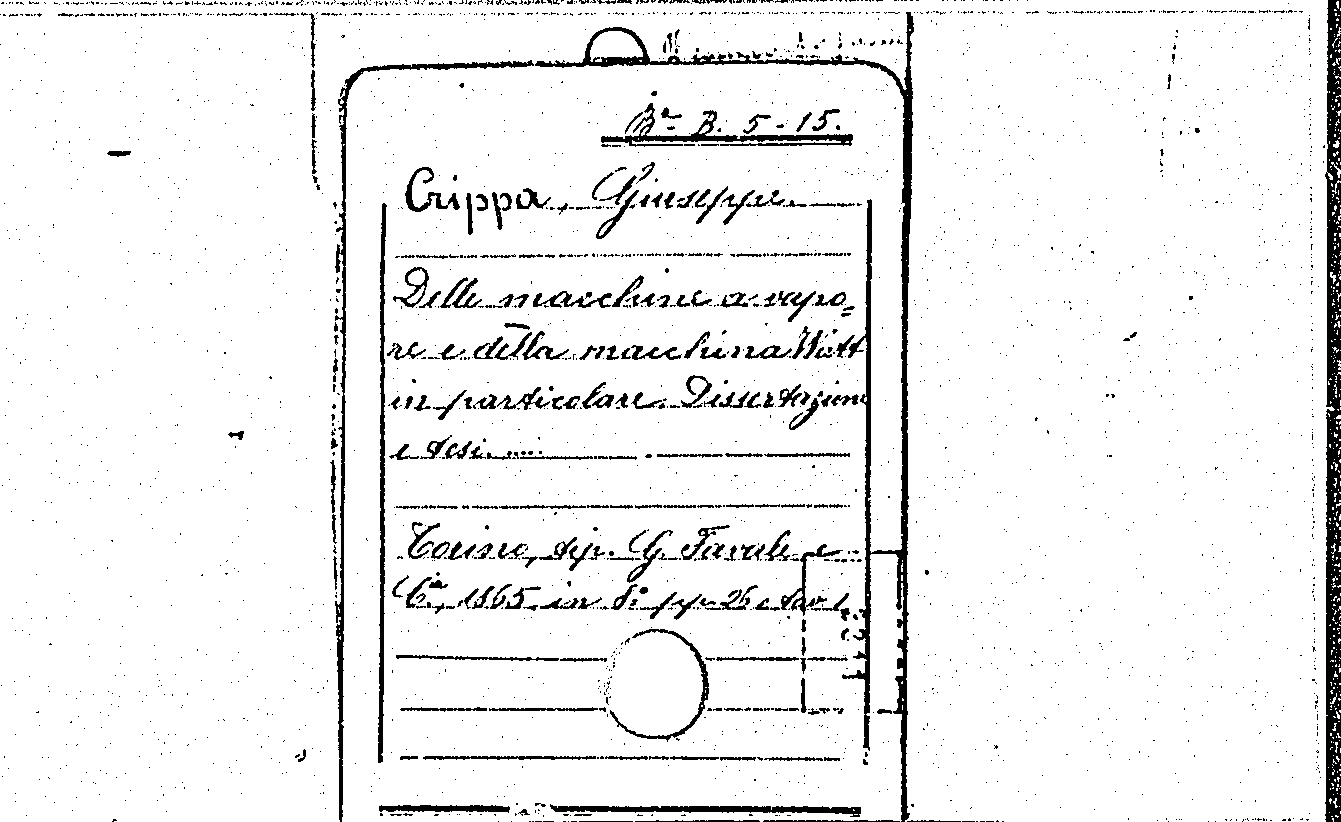 Ba B. 5-15.
Crippa, Giuseppe.
Delle macchine a vapo=
re e della macchina Watt
in particolare. Dissertazione
e tesi.
Torino, tip. G. Favale e
C.ia, 1865. in 8° pp. 26 e tav 1.